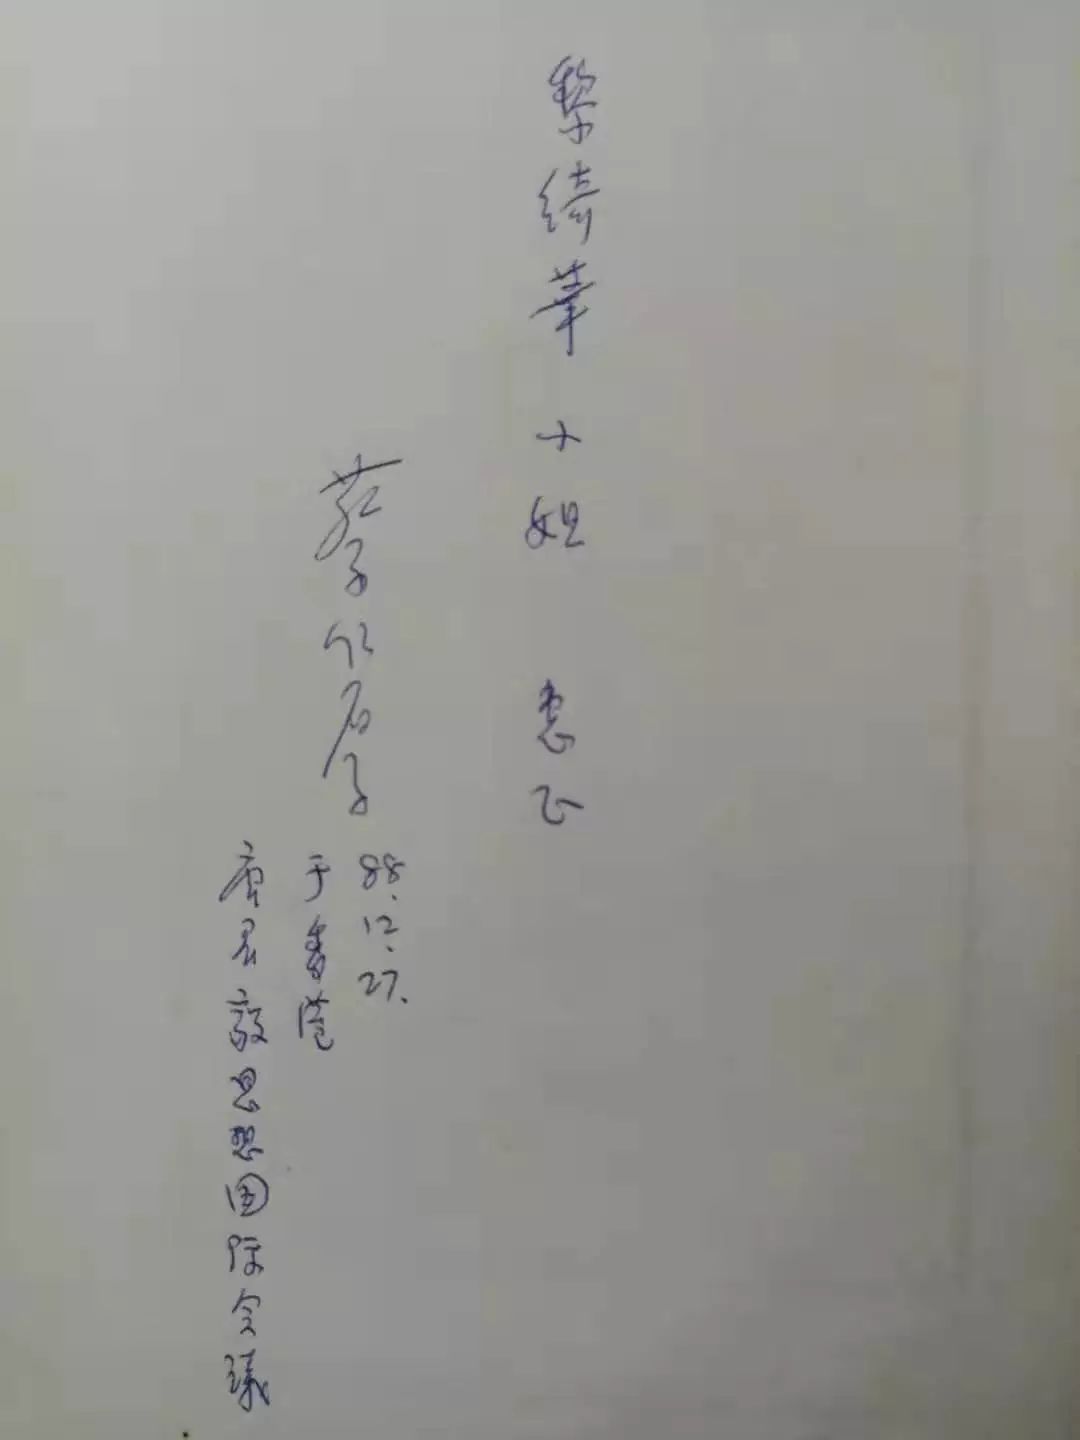 黎綺華小姐 惠正
蔡仁厚
88.12.27.
于香港
唐君毅思想国际会議